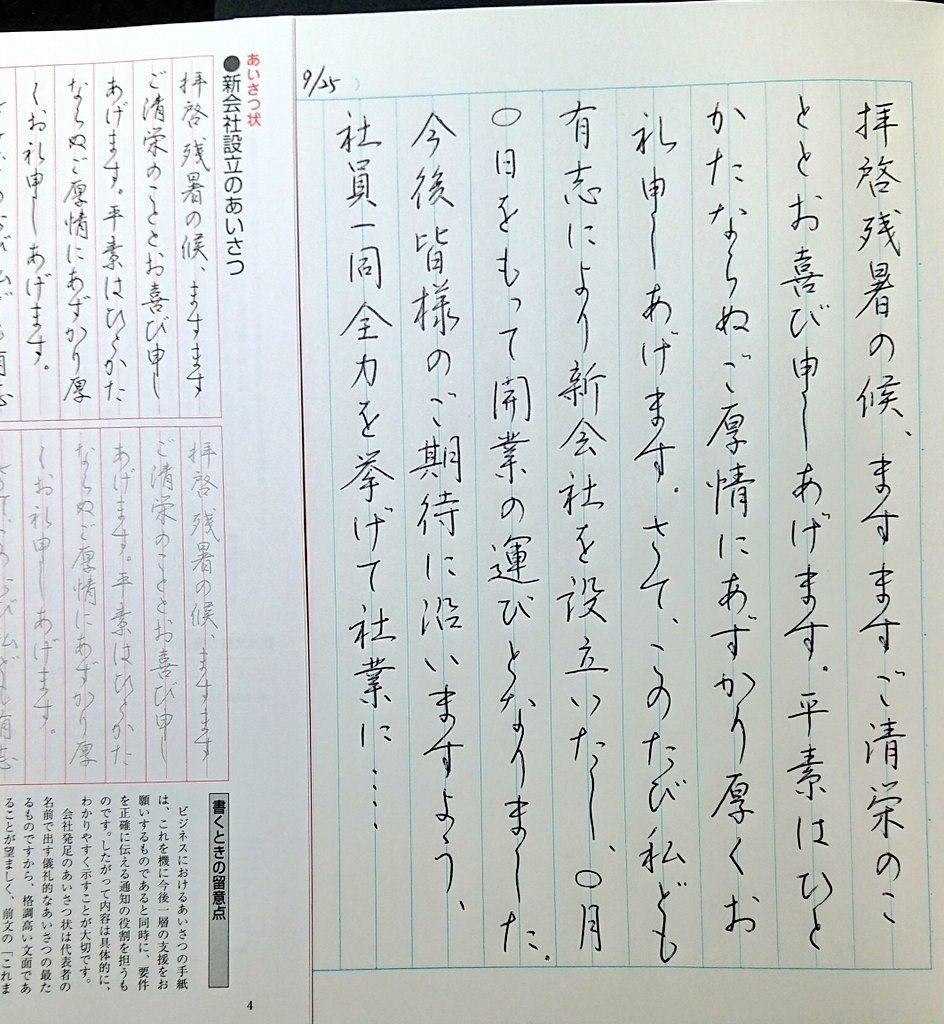 9/25
拝啓残暑の候、ますますご清栄のこ
ととお喜び申しあげます。平素はひと
かたならぬご厚情にあずかり厚くお
礼申しあげます。さて、このたび私ども
有志により新会社を設立いたし、〇月
〇日をもって開業の運びとなりました。
今後皆様のご期待に沿いますよう、
社員一同全力を挙げて社業に……
あいさつ状
●新会社設立のあいさつ
拝啓残暑の候、ますます
ご清栄のこととお喜び申し
あげます。平素はひとかた
ならぬご厚情にあずかり厚
くお礼申しあげます。
拝啓残暑の候、ますます
ご清栄のこととお喜び申し
あげます。平素はひとかた
ならぬご厚情にあずかり厚
くお礼申しあげます。
書くときの留意点
ビジネスにおけるあいさつの手紙
は、これを機に今後一層の支援をお
願いするものであると同時に、要件
を正確に伝える通知の役割を担うも
のです。したがって内容は具体的に、
わかりやすく示すことが大切です。
会社発足のあいさつ状は代表者の
名前で出す儀礼的なあいさつの最た
るものですから、格調高い文面であ
ることが望ましく、前文の「これま
4